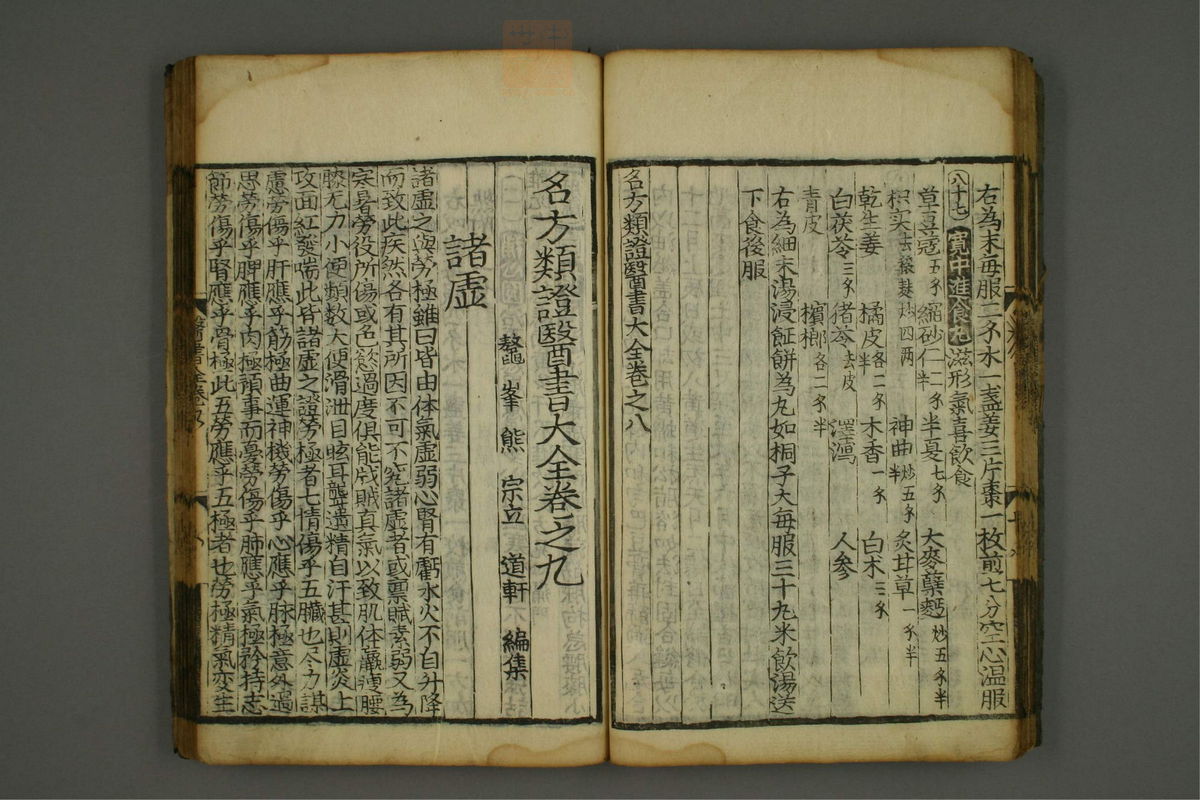 右為末每服二夕水一盞姜三片棗一枚煎七分空心温服
八十七 寛中進食丸 滋形氣喜飲食
草豆蔻五夕 縮砂一二夕半 半夏七夕 大麥蘖麪炒五夕半
枳实去穰麸炒四两 神曲炒五夕半 炙甘草一夕半
乾生姜 橘皮各二夕半 木香一夕 白术三夕
白茯苓三夕 猪苓去皮 澤瀉 人参
青皮 檳榔各二夕半
右為細末湯浸蒸餅為丸如桐子大每服三十丸米飲湯送
下食後服
名方類證醫書大全卷之八
名方類證醫書大全卷之九
鼇峯 熊 宗立 道軒 編集
諸虚
諸虚之與勞極雖曰皆由体氣虚弱心腎有虧水火不自升降
而致此疾然各有其所因不可不究諸虚者或禀賦素弱又為
寒暑勞役所傷或色慾過度俱能戕賊真氣以致肌体羸瘦腰
膝无力小便頻数大便滑泄目眩耳聾遺精自汗甚則虚炎上
攻面紅發喘此皆諸虚之證勞極者七情傷乎五臟也尽力謀
慮勞傷乎肝應乎筋極曲運神機勞傷乎心應乎脉極意外過
思勞傷乎脾應乎肉極預事而憂勞傷乎肺應乎氣極矜持志
節勞傷乎腎應乎骨極此五勞應乎五極者也勞極精氣变生